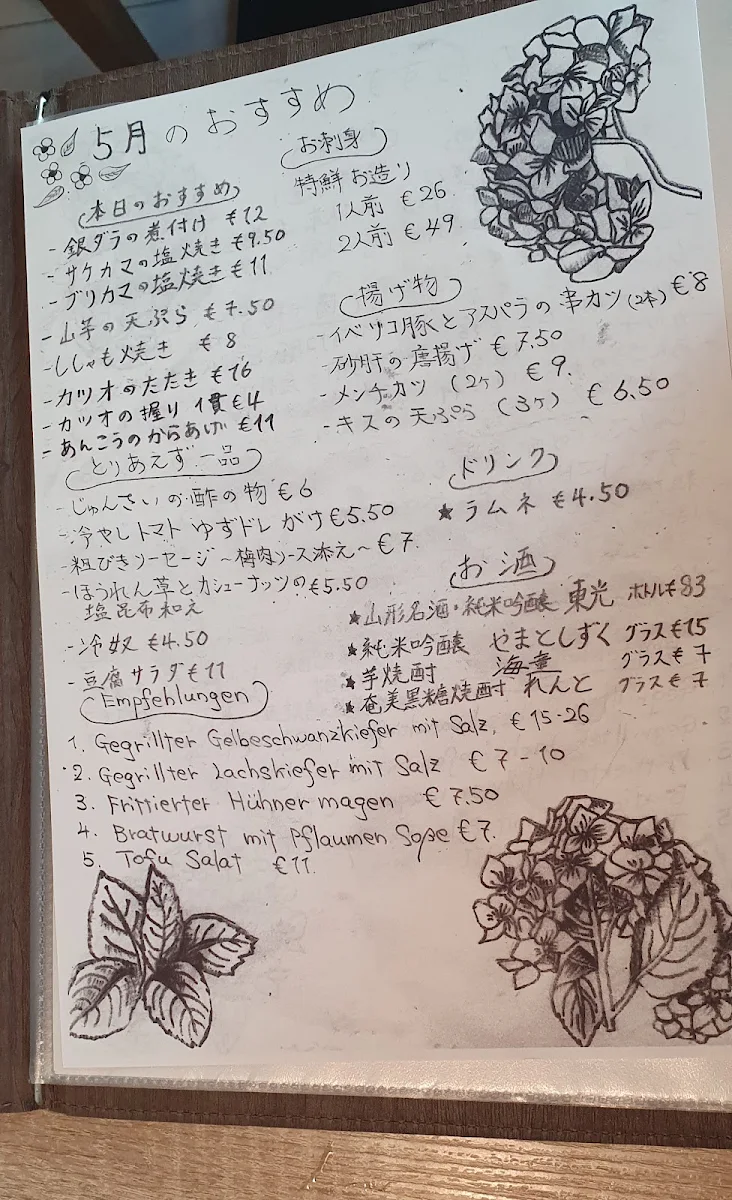 5月のおすすめ
本日のおすすめ
- 銀ダラの煮付け €12
- サケカマの塩焼き €9.50
- ブリカマの塩焼き €11
- 山芋の天ぷら €7.50
- ししゃも焼き €8
- カツオのたたき €16
- カツオの握り 1貫 €4
- あんこうのからあげ €11
お刺身
特鮮 お造り
1人前 €26
2人前 €49
揚げ物
- イベリコ豚とアスパラの串カツ(2本) €8
- 砂肝の唐揚げ €7.50
- メンチカツ (2ヶ) €9.
- キスの天ぷら (3ヶ) €6.50
とりあえず一品
- じゅんさいの酢の物 €6
- 冷やしトマト ゆずドレがけ €5.50
- 粗びきソーセージ〜梅肉ソース添え〜 €7
- ほうれん草とカシューナッツの €5.50
塩昆布和え
- 冷奴 €4.50
- 豆腐サラダ €11
ドリンク
★ ラムネ €4.50
お酒
★山形名酒・純米吟醸 東光 ボトル€83
★純米吟醸 やまとしずく グラス€15
★芋焼酎 海童 グラス€7
★奄美黒糖焼酎 れんと グラス€7
Empfehlungen
1. Gegrillter Gelbeschwanzkiefer mit Salz, €15-26
2. Gegrillter Lachskiefer mit Salz €7-10
3. Frittierter Hühner magen €7.50
4. Bratwurst mit Pflaumen Soße €7.
5. Tofu Salat €11